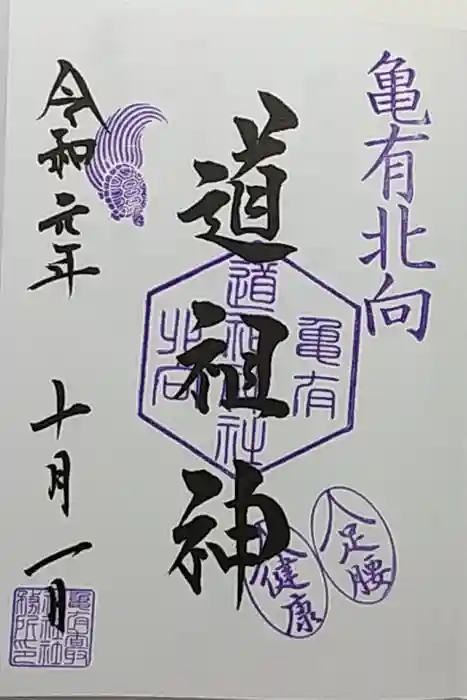 亀有北向
道祖神
亀有
道祖神社
北向
足腰
健康
令和元年 十月一日